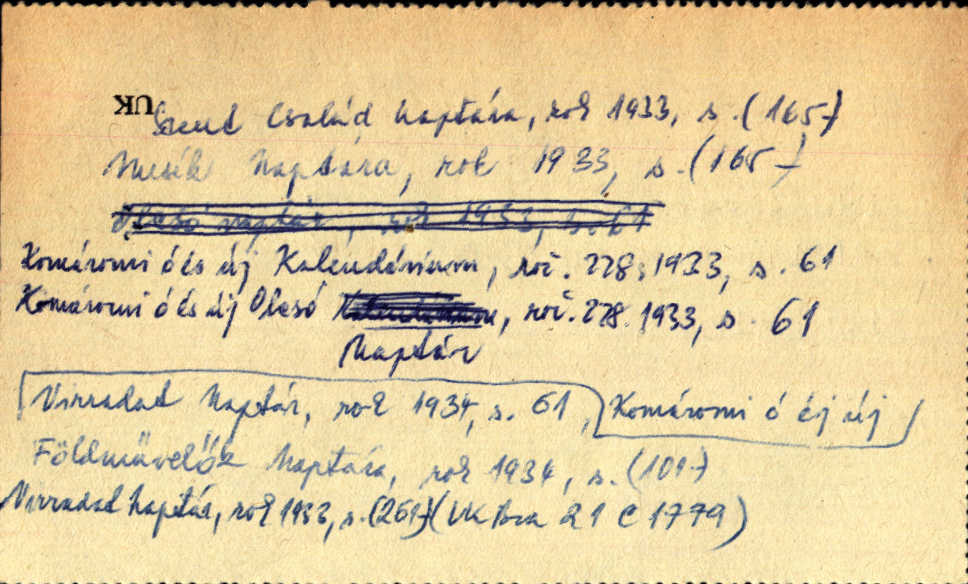 UK
Szent Család Naptára, rok 1933, s. (165-)
Mesék Naptára, rok 1933, s. (165-)
Olcsó naptár, rok 1933, s. 61
Komáromi ó és új Kalendárium, roč. 228, 1933, s. 61
Komáromi ó és új Olcsó Kalendárium, roč. 228. 1933, s. 61
Naptár
Virradat Naptár, rok 1934, s. 61, Komáromi ó éj új
Földművelők Naptára, rok 1934, s. (101-)
Virradat Naptár, rok 1933, s. (261-) (UK Bra 21 C 1779)